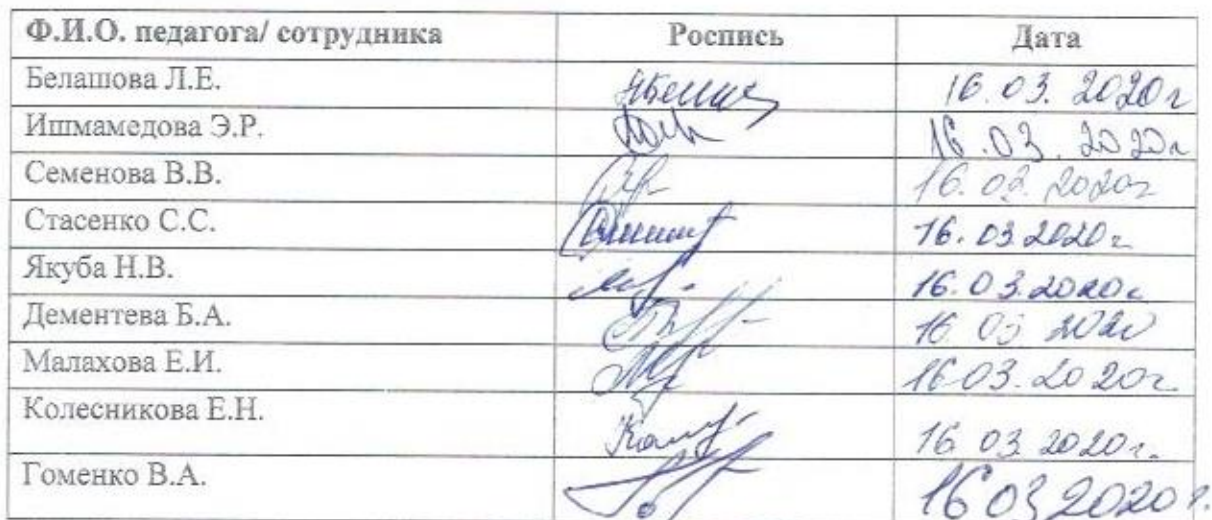 Ф.И.О. педагога/ сотрудника Роспись Дата
Белашова Л.Е. 16.03.2020г
Ишмамедова Э.Р. 16.03.2020г
Семенова В.В. 16.03.2020г
Стасенко С.С. 16.03.2020г
Якуба Н.В. 16.03.2020г
Дементева Б.А. 16 03 2020
Малахова Е.И. 16 03.2020г.
Колесникова Е.Н. 16 03 2020г.
Гоменко В.А. 16 03 2020г.